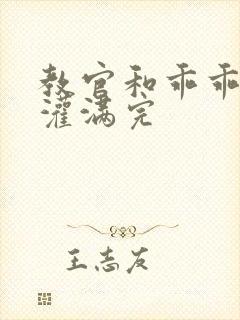 教官和乖乖
灌满完
王志友